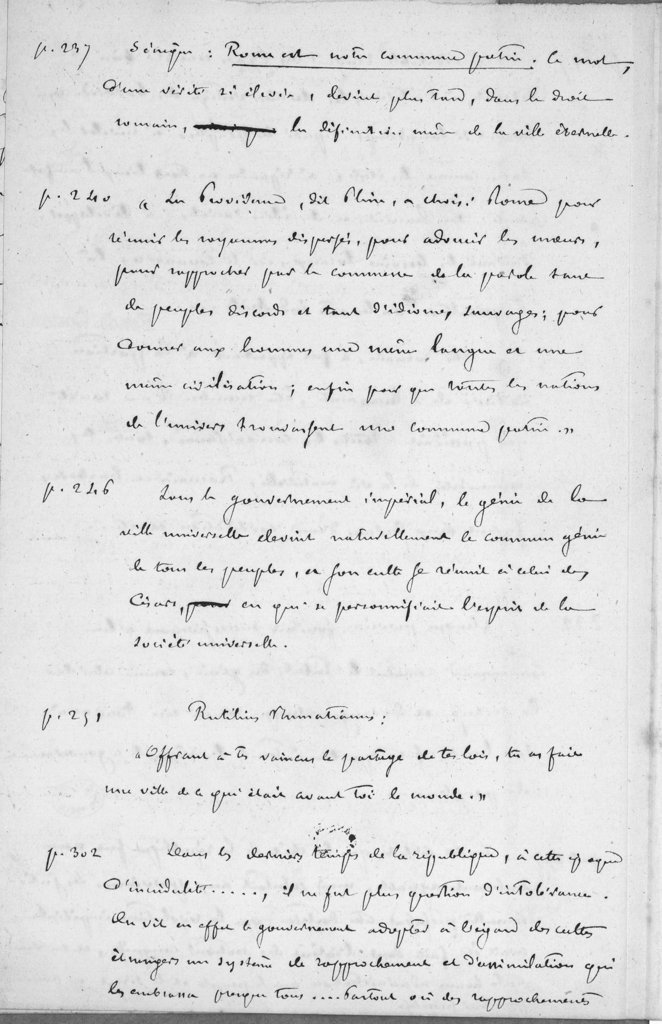 p. 237 Sénèque : Rome est notre commune patrie. Ce mot,
d'une vérité si élevée, devint plus tard, dans le droit
romain, la définition même de la ville éternelle.
p. 240 « La Providence, dit Pline, a choisi Rome pour
réunir les royaumes dispersés, pour adoucir les mœurs,
pour rapprocher par le commerce de la parole tant
de peuples discords et tant d'idiomes sauvages ; pour
donner aux hommes une même langue et une
même civilisation ; enfin pour que toutes les nations
de l'univers trouvassent une commune patrie. »
p. 246 Sous le gouvernement impérial, le génie de la
ville universelle devint naturellement le commun génie
de tous les peuples, et son culte se réunit à celui des
Césars, en qui se personnifiait l'esprit de la
société universelle.
p. 251 Rutilius Numatianus :
« Offrant à tes vaincus le partage de tes lois, tu as fait
une ville de ce qui était avant toi le monde. »
p. 302 Dans les derniers temps de la république, à cette époque
d'incrédulité ....., il ne fut plus question d'intolérance.
On vit en effet le gouvernement adopter à l'égard des cultes
étrangers un système de rapprochement et d'assimilation qui
les embrassa presque tous .... Partout où des rapprochements